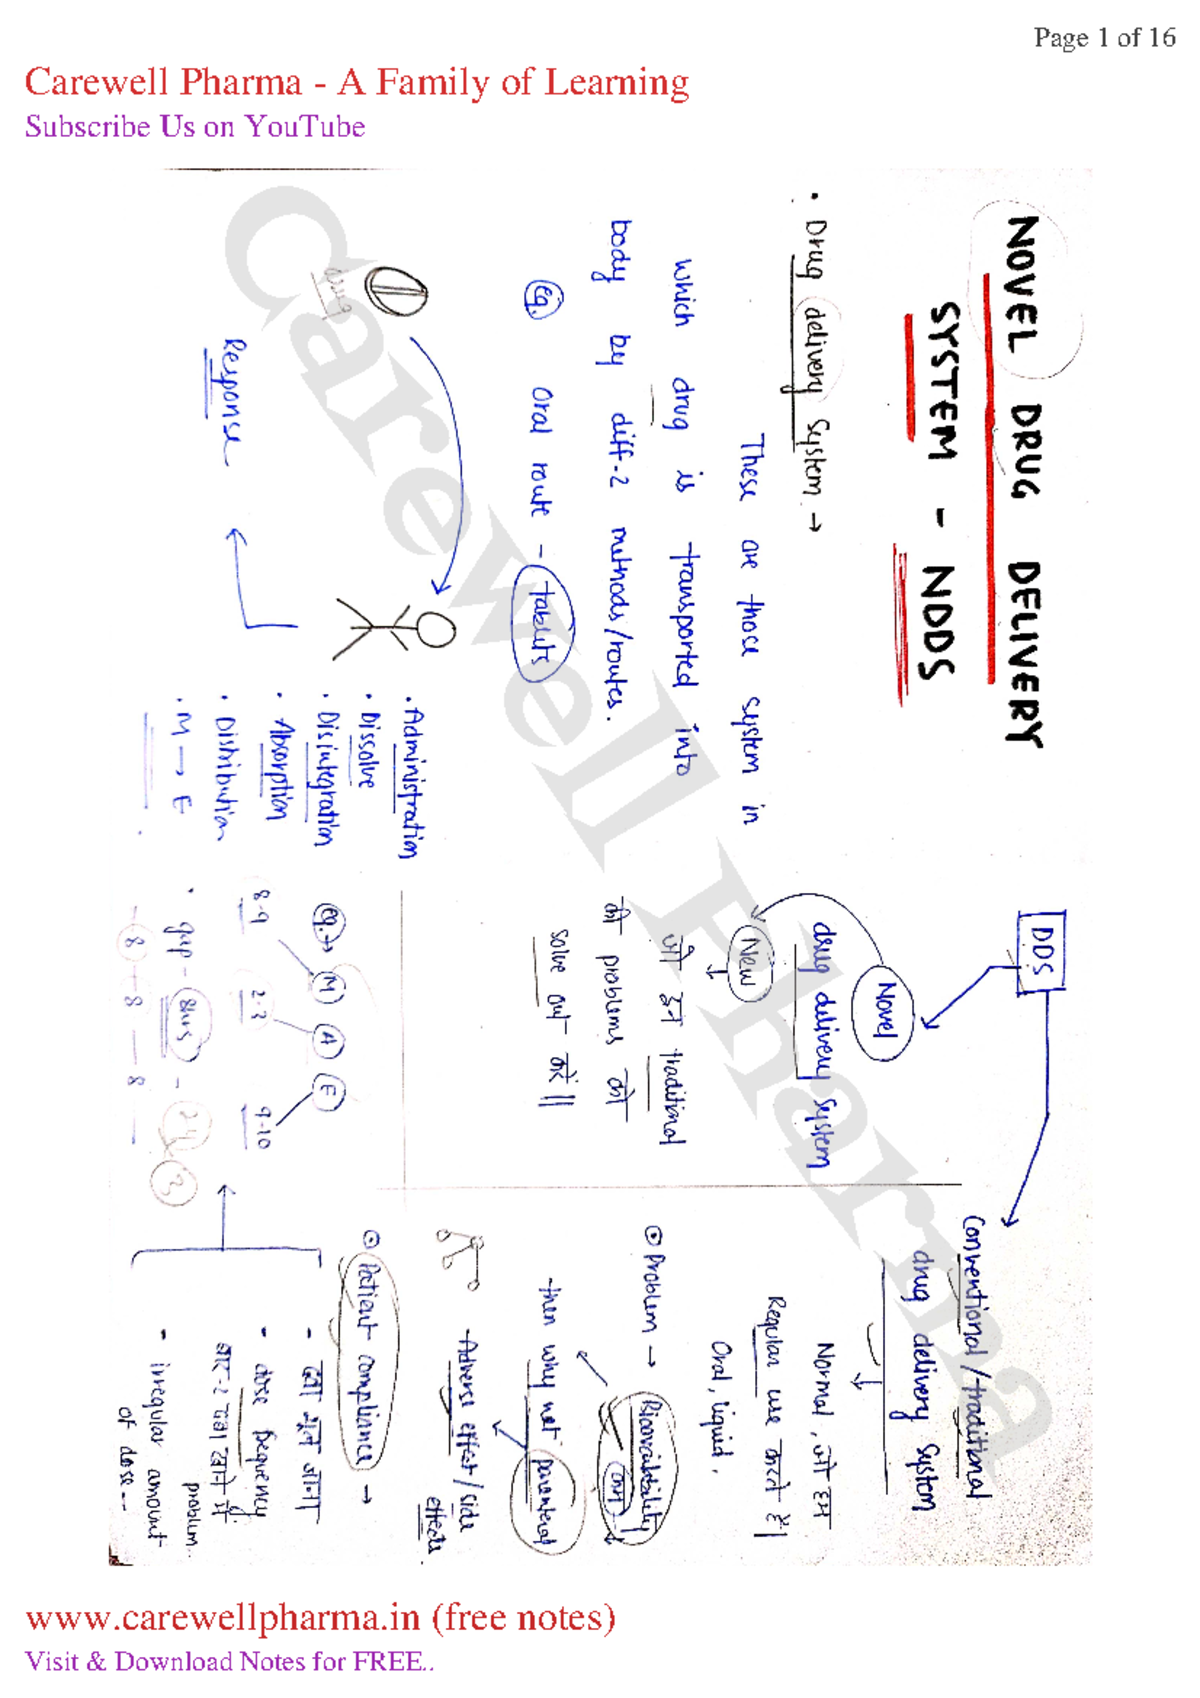 Page 1 of 16
Carewell Pharma - A Family of Learning
Subscribe Us on YouTube
Carewell Pharma
NOVEL DRUG DELIVERY
SYSTEM - NDDS
• Drug delivery System →
These are those system in
which drug is transported into
body by diff-2 methods/routes.
eg. Oral route - tablets
drug
Response
• Administration
• Dissolve
• Disintegration
• Absorption
• Distribution
• M → E
DDS
Novel
drug delivery system
New
↓
जो इन traditional
की problems को
solve out करें ||
eg. → M A E
8-9 2-3 9-10
• gap - 8hrs - 24 3
- 8 - 8 - 8 -
Conventional/traditional
drug delivery system
↓
Normal, जो हम
Regular use करते हैं|
Oral, liquid.
⊙ Problem → Bioavailability
then why not parenteral
-Adverse effect/side
effects.
⊙ Patient compliance →
- दवा भूल जाना
• dose frequency
बार-2 दवा खाने में
problem..
• irregular amount
of dose--
www.carewellpharma.in (free notes)
Visit & Download Notes for FREE..